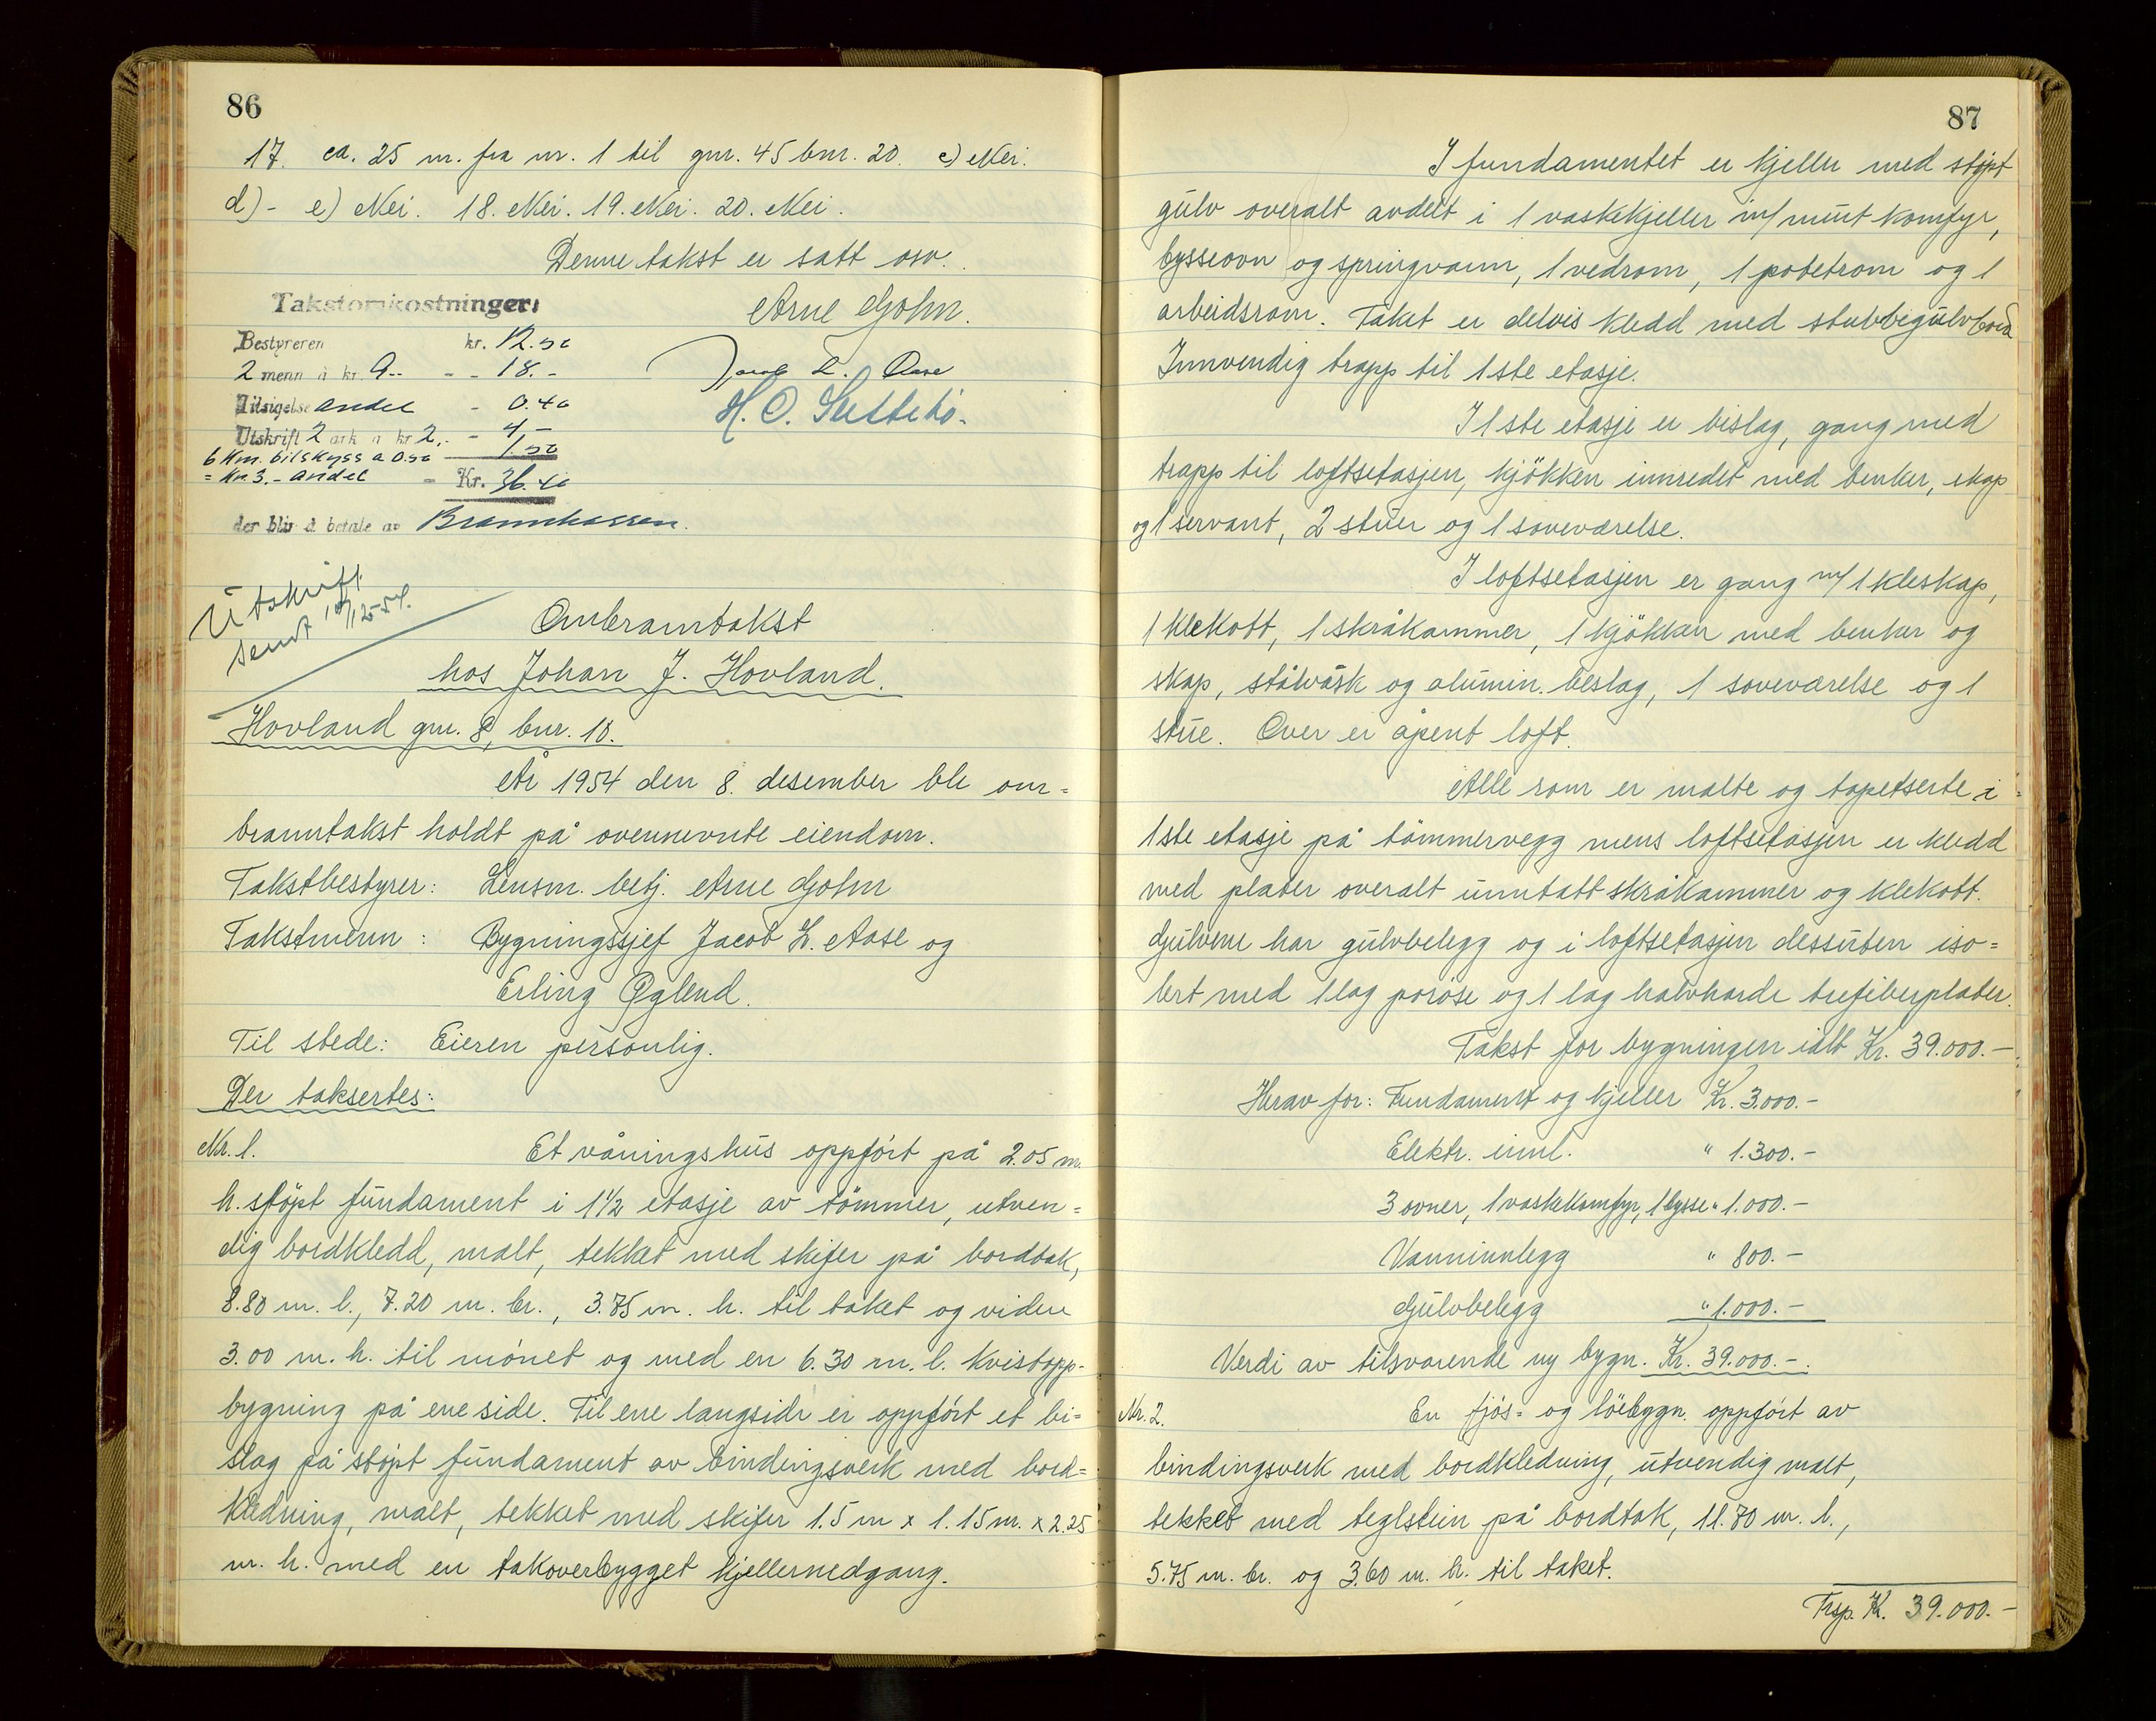 86
17. ca. 25 m. fra nr. 1 til gnr. 45 bnr. 20. c) Nei.
d) - e) Nei. 18. Nei. 19. Nei. 20. Nei.
Denne takst er satt osv.
Takstomkostninger:
Bestyreren kr. 12.50
2 menn à kr. 9.- - - 18.-
Tilsigelse andel - 0.40
Utskrift 2 ark à kr. 2.- - 4.-
6 km. bilskyss a 0.50 1.50
= kr. 3.- andel - Kr. 36.40
der blir å betale av Brannkassen.
Arne Gjohn.
Jacob L. Aase
H. O.
Utskrift
sendt
Ombranntakst
hos Johan J. Hovland.
Hovland gnr. 8, bnr. 18.
År 1954 den 8. desember ble om=
branntakst holdt på ovennevnte eiendom.
Takstbestyrer: Lensm. betj. Arne Gjohn
Takstmenn: Bygningssjef Jacob L. Aase og
Erling Øglend.
Til stede: Eieren personlig.
Der taksertes:
Nr. 1. Et våningshus oppført på 2.05 m.
h. støpt fundament i 1½ etasje av tømmer, utven=
dig bordkledd, malt, tekket med skifer på bordtak,
8.80 m. l., 7.20 m. br., 3.75 m. h. til taket og videre
3.00 m. h. til mønet og med en 6.30 m. l. kvistopp-
bygning på ene side. Til ene langside er oppført et bi=
slag på støpt fundament av bindingsverk med bord=
kledning, malt, tekket med skifer 1.5 m x 1.15 m. x 2.25
m. h. med en takoverbygget kjellernedgang.
87
I fundamentet er kjeller med støpt
gulv overalt avdelt i 1 vaskekjeller m/ murt komfyr,
bysseovn og springvann, 1 vedrom, 1 potetrom og 1
arbeidsrom. Taket er delvis kledd med stubbegulvbord
Innvendig trapp til 1ste etasje.
I 1ste etasje er bislag, gang med
trapp til loftsetasjen, kjøkken innredet med benker, skap
og 1 servant, 2 stuer og 1 soveværelse.
I loftsetasjen er gang m/ 1 kleskap,
1 klekott, 1 skråkammer, 1 kjøkken med benker og
skap, stålvask og alumin. beslag, 1 soveværelse og 1
stue. Over er åpent loft.
Alle rom er malte og tapetserte i
1ste etasje på tømmervegg mens loftsetasjen er kledd
med plater overalt unntatt skråkammer og klekott.
Gulvene har gulvbelegg og i loftsetasjen dessuten iso=
lert med 1 lag porøse og 1 lag halvharde trefiberplater.
Takst for bygningen ialt Kr. 39.000.-
Herav for: Fundament og kjeller Kr. 3.000.-
Elektr. innl. " 1.300.-
3 ovner, 1 vaskekomfyr, 1 bysse " 1.000.-
Vanninnlegg " 800.-
Gulvbelegg " 1.000.-
Verdi av tilsvarende ny bygn. Kr. 39.000.-.
Nr. 2. En fjøs= og løebygn. oppført av
bindingsverk med bordkledning, utvendig malt,
tekket med teglstein på bordtak, 11.70 m. l.,
5.75 m. br. og 3.60 m. h. til taket.
Trsp. Kr. 39.000.-